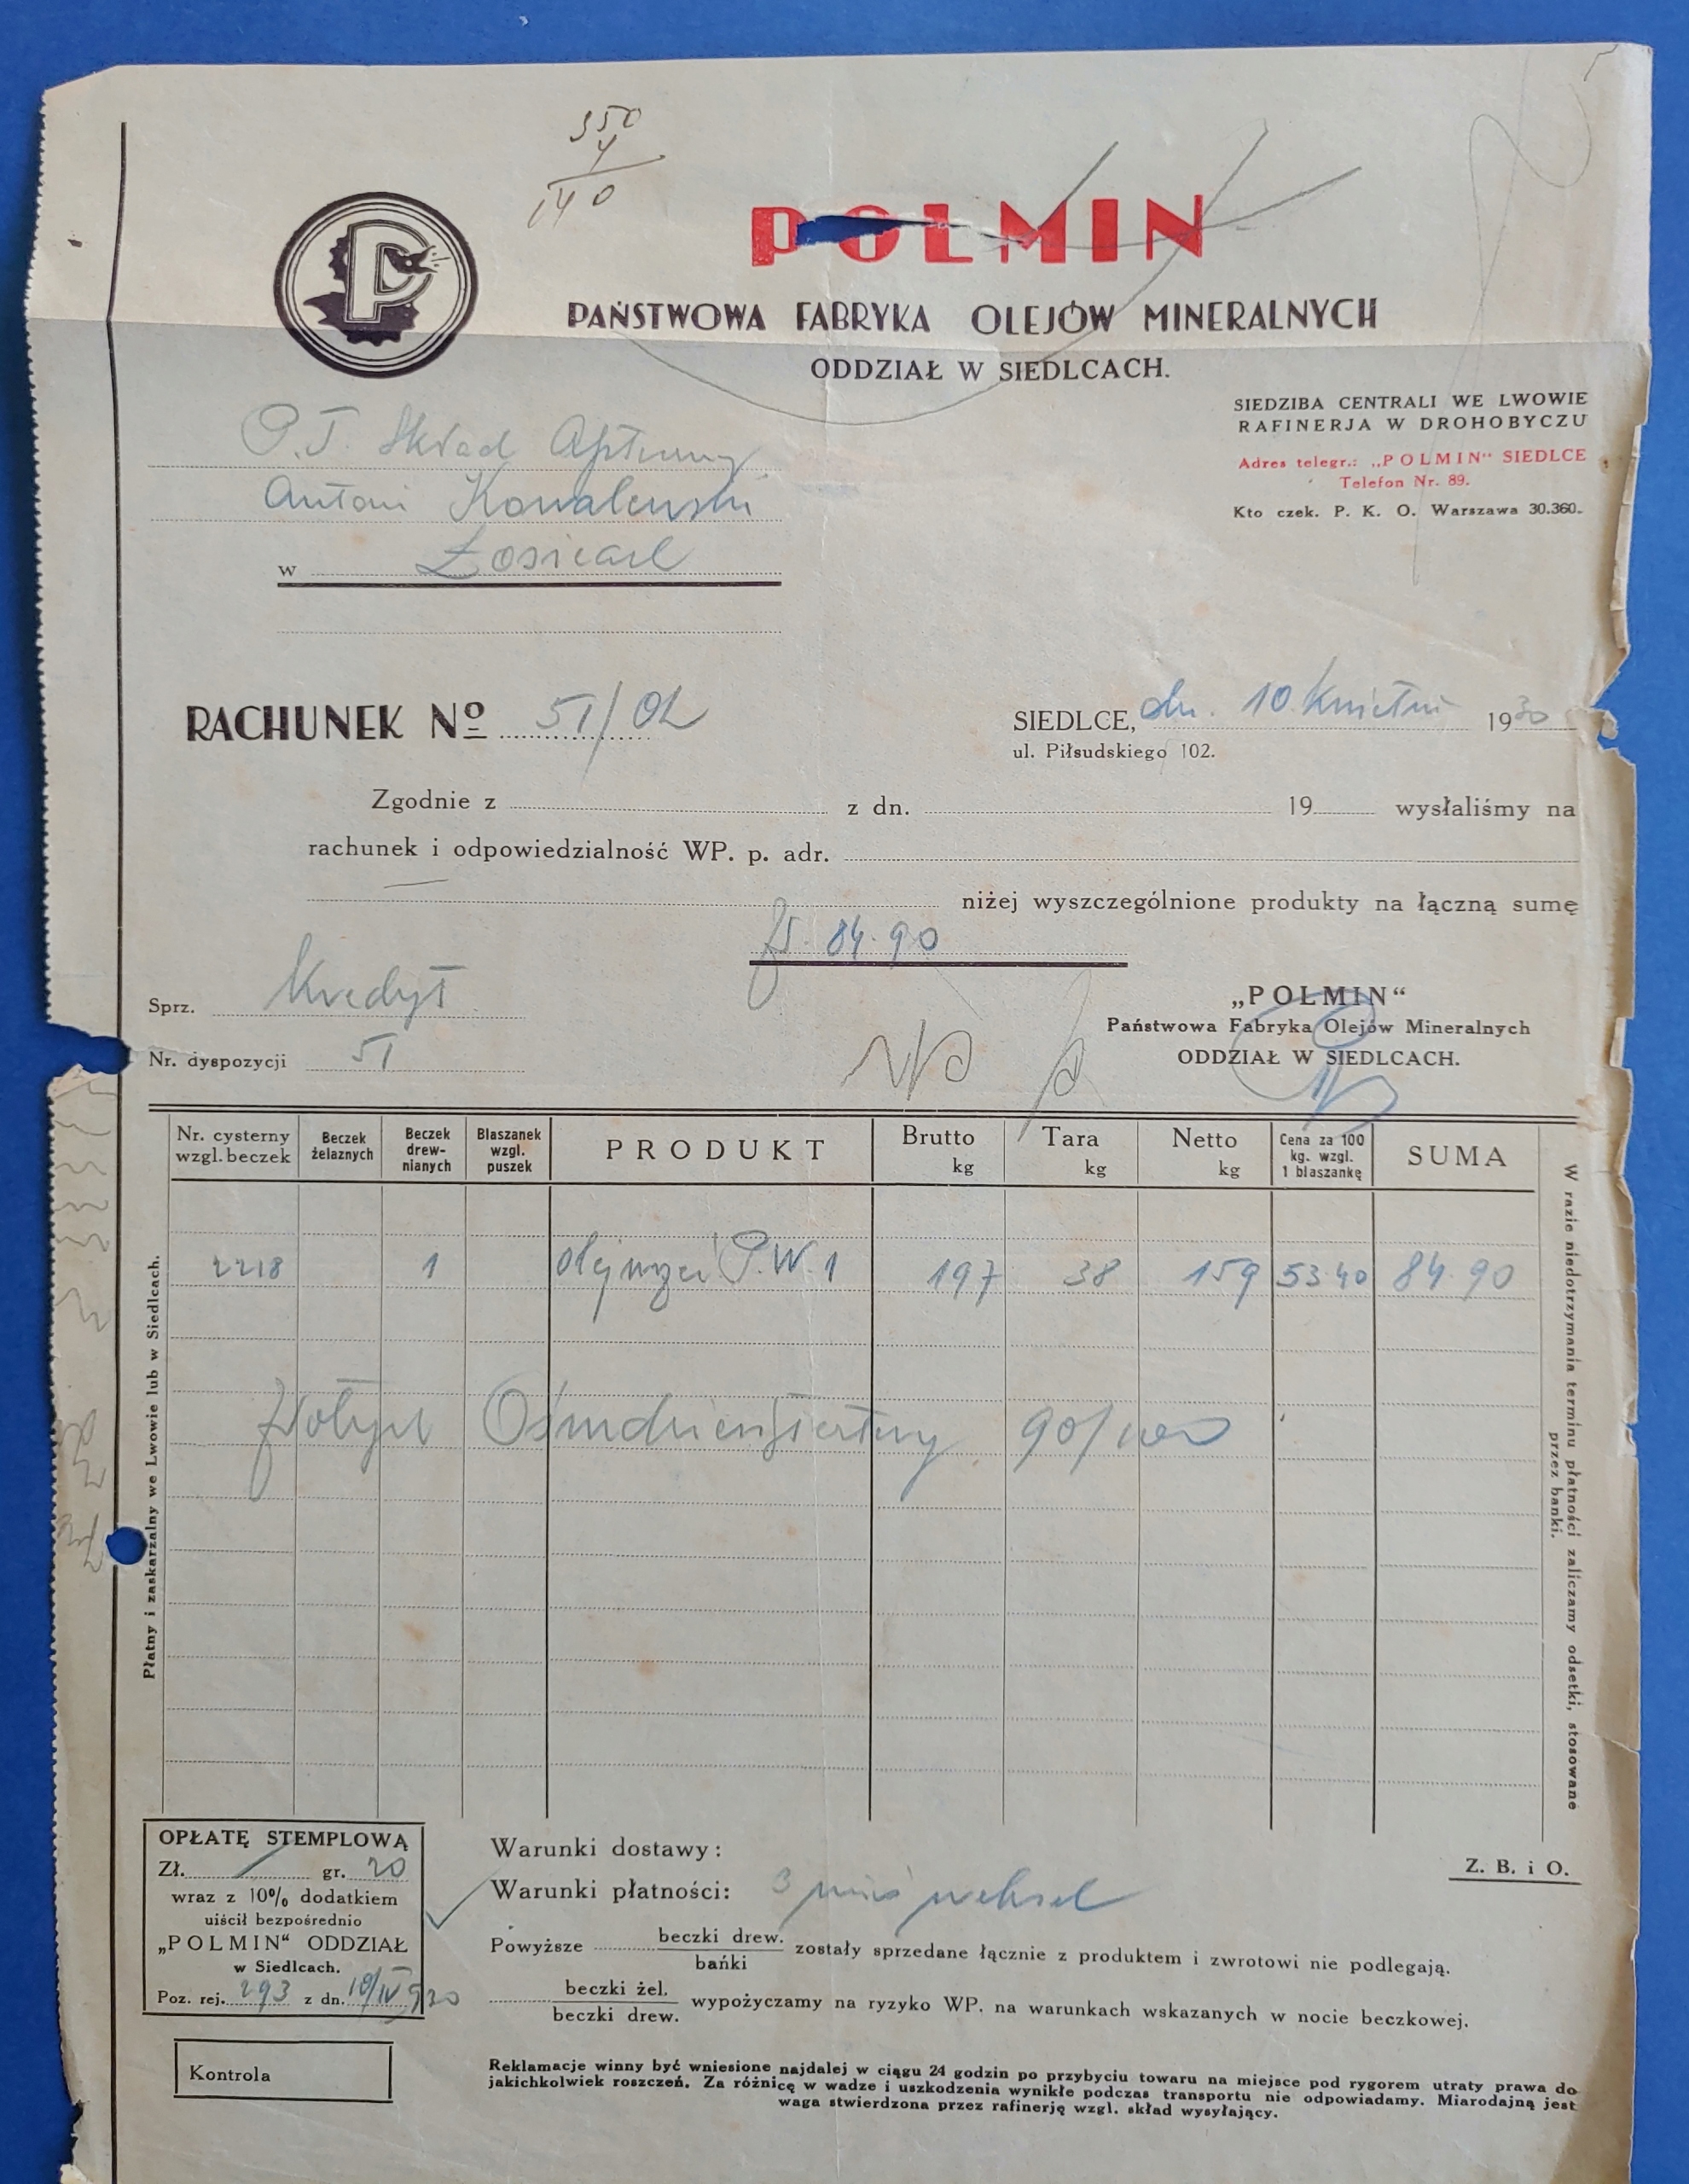 350
4
140
POLMIN
PAŃSTWOWA FABRYKA OLEJÓW MINERALNYCH
ODDZIAŁ W SIEDLCACH.
SIEDZIBA CENTRALI WE LWOWIE
RAFINERJA W DROHOBYCZU
Adres telegr.: „POLMIN“ SIEDLCE
Telefon Nr. 89.
Kto czek. P. K. O. Warszawa 30.360.
P.T. Skład Apteczny
Antoni Kowalewski
w Łosicach
RACHUNEK No 51/Oł
SIEDLCE, dn. 10 Kwietnia 1930
ul. Piłsudskiego 102.
Zgodnie z z dn. 19 wysłaliśmy na
rachunek i odpowiedzialność WP. p. adr.
niżej wyszczególnione produkty na łączną sumę
zł. 84.90
Sprz. Kredyt
Nr. dyspozycji 51
„POLMIN“
Państwowa Fabryka Olejów Mineralnych
ODDZIAŁ W SIEDLCACH.
Nr. cysterny wzgl. beczek Beczek żelaznych Beczek drew-nianych Blaszanek wzgl. puszek PRODUKT Brutto kg Tara kg Netto kg Cena za 100 kg. wzgl. 1 blaszankę SUMA
2218 1 olej P.W. 1 197 38 159 53.40 84.90
złotych Ośmdziesiąt cztery 90/100
Płatny i zaskarżalny we Lwowie lub w Siedlcach.
W razie niedotrzymania terminu płatności zaliczamy odsetki, stosowane
przez banki.
OPŁATĘ STEMPLOWĄ
Zł. gr. 20
wraz z 10% dodatkiem
uiścił bezpośrednio
„POLMIN“ ODDZIAŁ
w Siedlcach.
Poz. rej. 293 z dn. 10/IV 930
Kontrola
Warunki dostawy:
Z. B. i O.
Warunki płatności: 3 mieś weksel
Powyższe beczki drew. bańki zostały sprzedane łącznie z produktem i zwrotowi nie podlegają.
beczki żel. beczki drew. wypożyczamy na ryzyko WP. na warunkach wskazanych w nocie beczkowej.
Reklamacje winny być wniesione najdalej w ciągu 24 godzin po przybyciu towaru na miejsce pod rygorem utraty prawa do
jakichkolwiek roszczeń. Za różnicę w wadze i uszkodzenia wynikłe podczas transportu nie odpowiadamy. Miarodajną jest
waga stwierdzona przez rafinerję wzgl. skład wysyłający.